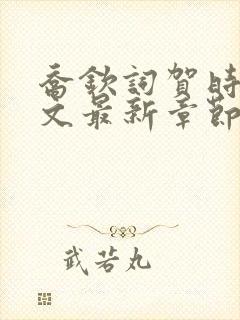 喬欽詞賀時
文最新章節
武若丸